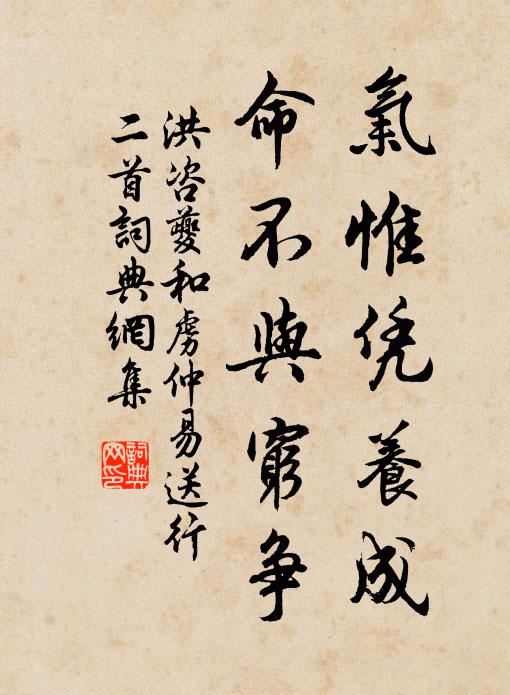 氣惟凭養成
命不與窮争
洪咨夔和虜仲易送行
二首詞典網集
詞典
网印